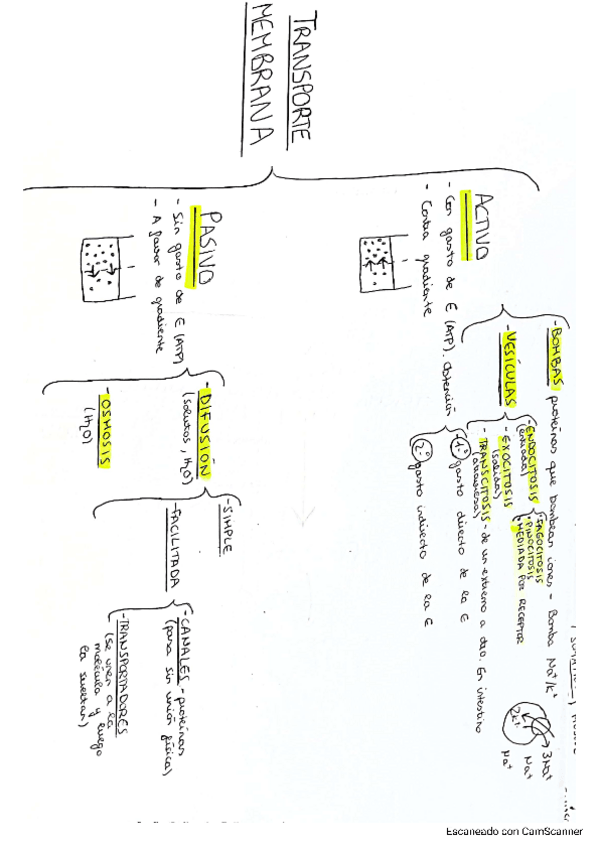 TRANSPORTE
MEMBRANA
ACTIVO
- Con gasto de E (ATP). Obtención
- Contra gradiente
1º gasto directo de la E
2º gasto indirecto de la E
- BOMBAS proteínas que bombean iones - Bomba Na⁺/K⁺
3Na⁺
2K⁺
Na⁺
Na⁺
- VESÍCULAS
- ENDOCITOSIS
(entrada)
- FAGOCITOSIS
- PINOCITOSIS
- MEDIADA POR RECEPTOR
- EXOCITOSIS
(salida)
- TRANSCITOSIS - de un extremo a otro. En intestino
(atraviesa)
PASIVO
- Sin gasto de E (ATP)
- A favor de gradiente
- DIFUSIÓN
(solutos, H₂O)
- SIMPLE
- FACILITADA
- CANALES - proteínas
(pasa sin unión física)
- TRANSPORTADORES
(se unen a la
molécula y luego
la sueltan)
- OSMOSIS
(H₂O)
Escaneado con CamScanner